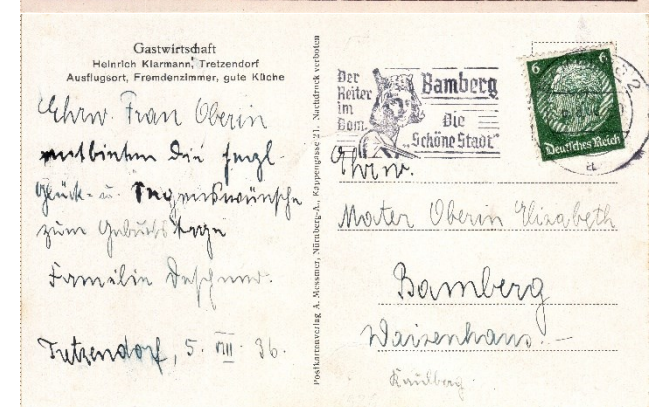 Gastwirtschaft
Heinrich Klarmann, Tretzendorf
Ausflugsort, Fremdenzimmer, gute Küche
Ehrw. Frau Oberin
entbieten die herzl.
Glück- u. Segenswünsche
zum Geburtstage
Familie
Tretzendorf, 5. VIII. 36.
Postkartenverlag A. Messmer, Nürnberg-A., Kappengasse 21. Nachdruck verboten
Der
Reiter
im
Dom
Bamberg
Die
„Schöne Stadt"
6 6
Deutsches Reich
2
a
Ehrw.
Mater Oberin Elisabeth
Bamberg
Waisenhaus.-
Kaulberg.